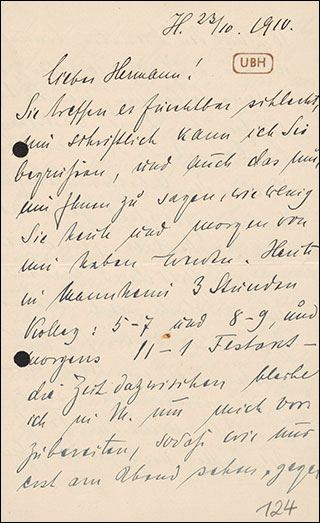 H. 23/10. 1910.
UBH
Lieber Hermann!
Sie treffen es furchtbar schlecht,
nur schriftlich kann ich Sie
begrüssen, und auch das nur,
um Ihnen zu sagen, wie wenig
Sie heute und morgen von
mir haben werden. Heute
in Mannheim 3 Stunden
Kolleg: 5-7 und 8-9, und
morgens 11-1 -
die Zeit dazwischen bleibe
ich in M. um mich vor
zubereiten, sodass wir uns
erst am Abend sehen, gegen
124